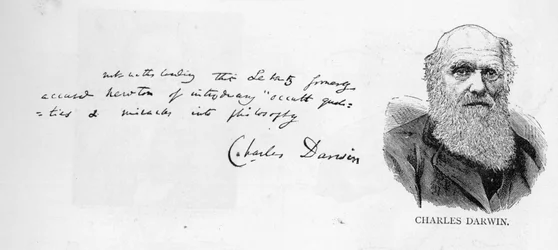 notwithstanding that Leibnitz formerly
accused Newton of introducing "occult quali-
=ties & miracles into philosophy
Charles Darwin
CHARLES DARWIN.